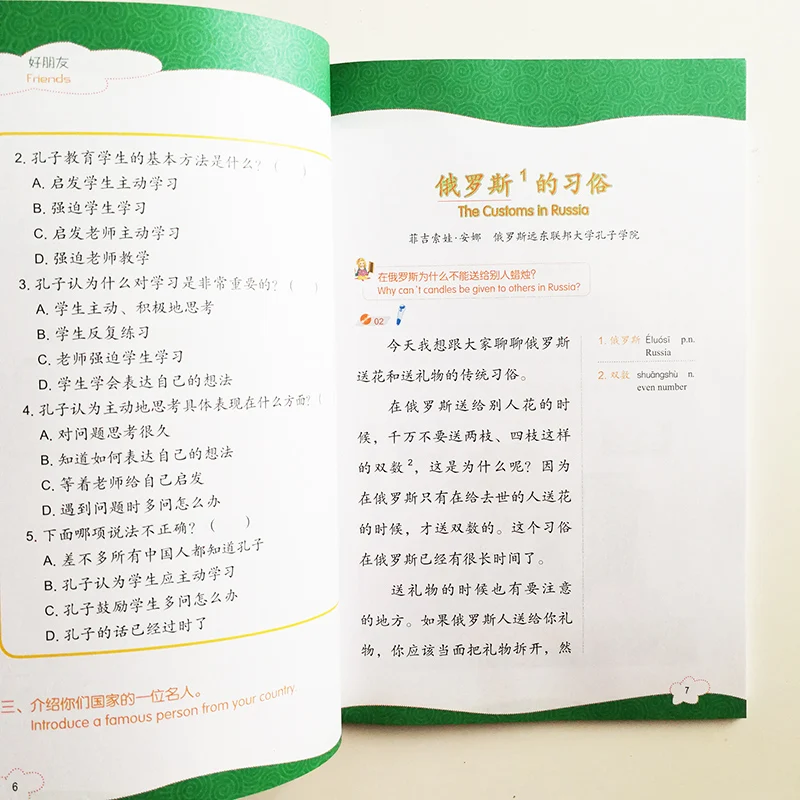 好朋友
Friends
2. 孔子教育学生的基本方法是什么？（　　）
A. 启发学生主动学习
B. 强迫学生学习
C. 启发老师主动学习
D. 强迫老师教学
3. 孔子认为什么对学习是非常重要的？（　　）
A. 学生主动、积极地思考
B. 学生反复练习
C. 老师强迫学生学习
D. 学生学会表达自己的想法
4. 孔子认为主动地思考具体表现在什么方面？（
A. 对问题思考很久
B. 知道如何表达自己的想法
C. 等着老师给自己启发
D. 遇到问题时多问怎么办
5. 下面哪项说法不正确？（　　）
A. 差不多所有中国人都知道孔子
B. 孔子认为学生应主动学习
C. 孔子鼓励学生多问怎么办
D. 孔子的话已经过时了
三、介绍你们国家的一位名人。
Introduce a famous person from your country
6
俄罗斯1的习俗
The Customs in Russia
菲吉索娃·安娜　俄罗斯远东联邦大学孔子学院
在俄罗斯为什么不能送给别人蜡烛？
Why can't candles be given to others in Russia?
02
今天我想跟大家聊聊俄罗斯
送花和送礼物的传统习俗。
在俄罗斯送给别人花的时
候，千万不要送两枝、四枝这样
的双数2，这是为什么呢？因为
在俄罗斯只有在给去世的人送花
的时候，才送双数的。这个习俗
在俄罗斯已经有很长时间了。
送礼物的时候也有要注意
的地方。如果俄罗斯人送给你礼
物，你应该当面把礼物拆开，然
1. 俄罗斯 Éluósī p.n.
Russia
2. 双数 shuāngshù n.
even number
7